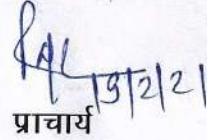 19/2/21
प्राचार्य